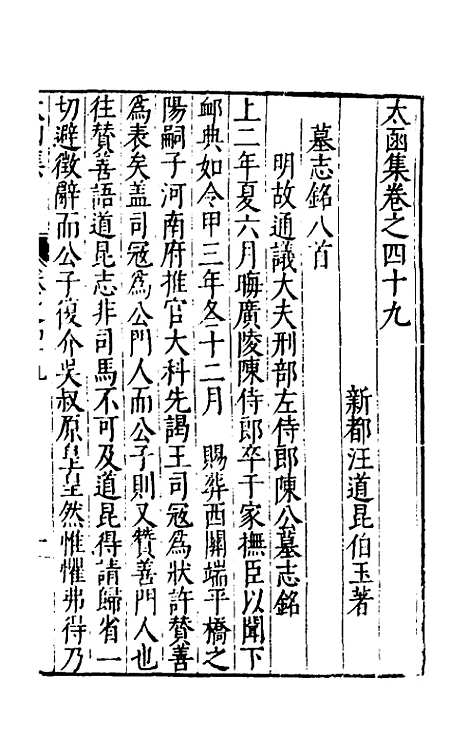 太函集卷之四十九
新都汪道昆伯玉著
墓志銘八首
明故通議大夫刑部左侍郎陳公墓志銘
上二年夏六月晦廣陵陳侍郎卒于家撫臣以聞下
䘏典如令甲三年冬十二月 賜葬西關端平橋之
陽嗣子河南府推官大科先謁王司寇爲狀許贊善
爲表矣盖司寇爲公門人而公子則又贊善門人也
往贊善語道昆志非司馬不可及道昆得請歸省一
切避徵辭而公子復介吳叔原皇皇然惟懼弗得乃